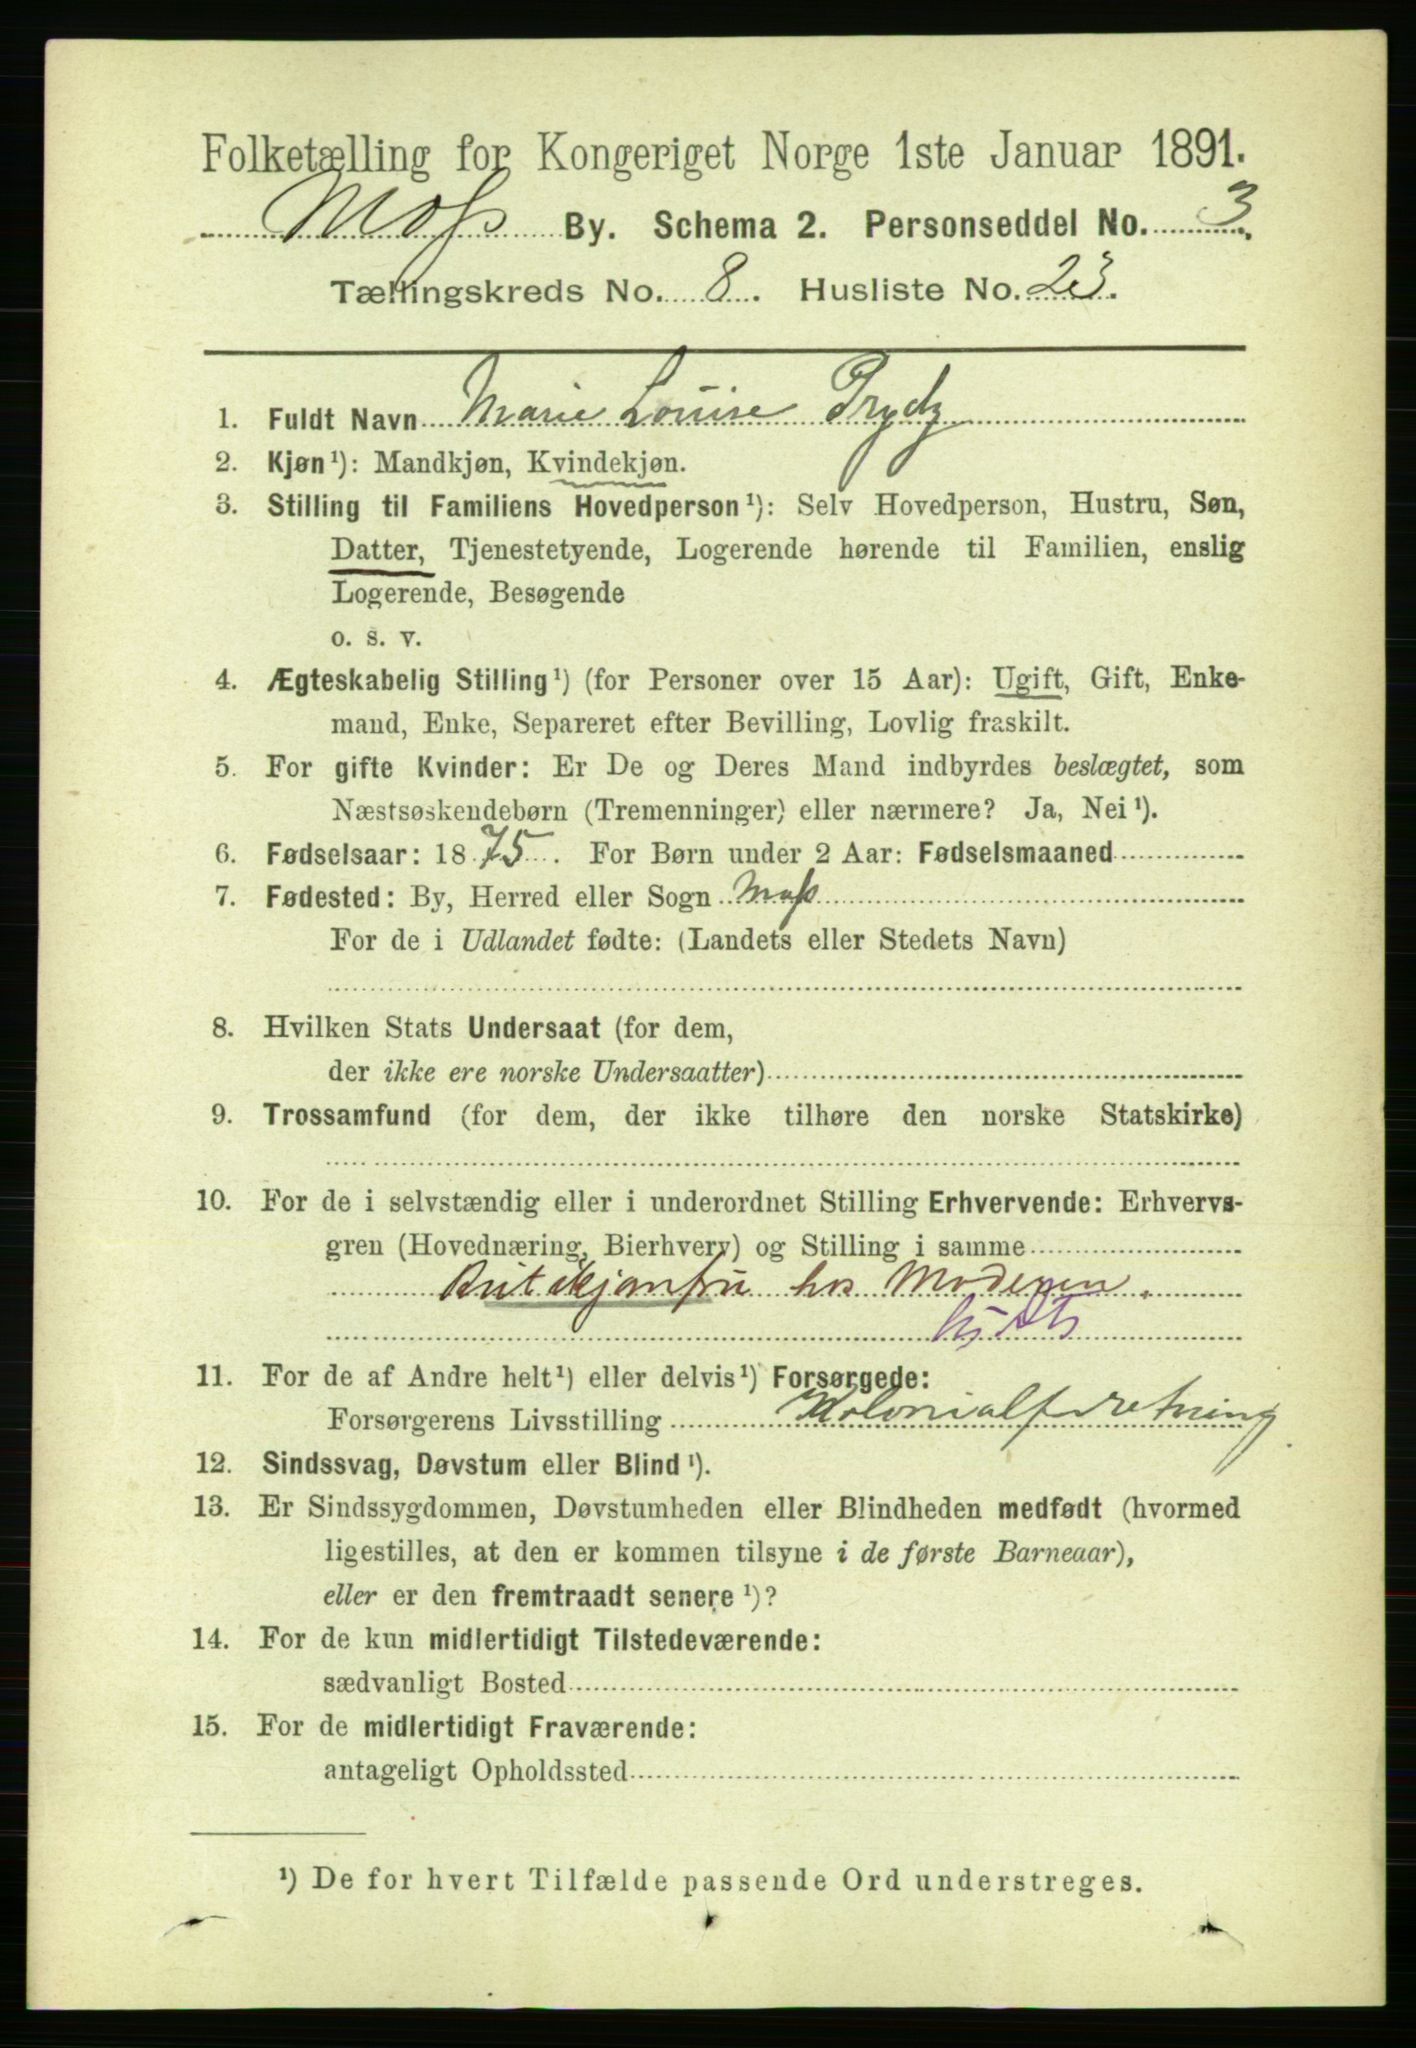 Folketælling for Kongeriget Norge 1ste Januar 1891.
Moss By. Schema 2. Personseddel No. 3.
Tællingskreds No. 8. Husliste No. 23.
1. Fuldt Navn Marie Louise Prydz
2. Kjøn¹): Mandkjøn, Kvindekjøn.
3. Stilling til Familiens Hovedperson¹): Selv Hovedperson, Hustru, Søn,
Datter, Tjenestetyende, Logerende hørende til Familien, enslig
Logerende, Besøgende
o. s. v.
4. Ægteskabelig Stilling¹) (for Personer over 15 Aar): Ugift, Gift, Enke-
mand, Enke, Separeret efter Bevilling, Lovlig fraskilt.
5. For gifte Kvinder: Er De og Deres Mand indbyrdes beslægtet, som
Næstsøskendebørn (Tremenninger) eller nærmere? Ja, Nei¹).
6. Fødselsaar: 1875. For Børn under 2 Aar: Fødselsmaaned
7. Fødested: By, Herred eller Sogn Moss
For de i Udlandet fødte: (Landets eller Stedets Navn)
8. Hvilken Stats Undersaat (for dem,
der ikke ere norske Undersaatter)
9. Trossamfund (for dem, der ikke tilhøre den norske Statskirke)
10. For de i selvstændig eller i underordnet Stilling Erhvervende: Erhvervs-
gren (Hovednæring, Bierhverv) og Stilling i samme
hos Moderen.
11. For de af Andre helt¹) eller delvis¹) Forsørgede:
Forsørgerens Livsstilling Kolonialforretning
12. Sindssvag, Døvstum eller Blind¹).
13. Er Sindssygdommen, Døvstumheden eller Blindheden medfødt (hvormed
ligestilles, at den er kommen tilsyne i de første Barneaar),
eller er den fremtraadt senere¹)?
14. For de kun midlertidigt Tilstedeværende:
sædvanligt Bosted
15. For de midlertidigt Fraværende:
antageligt Opholdssted
¹) De for hvert Tilfælde passende Ord understreges.